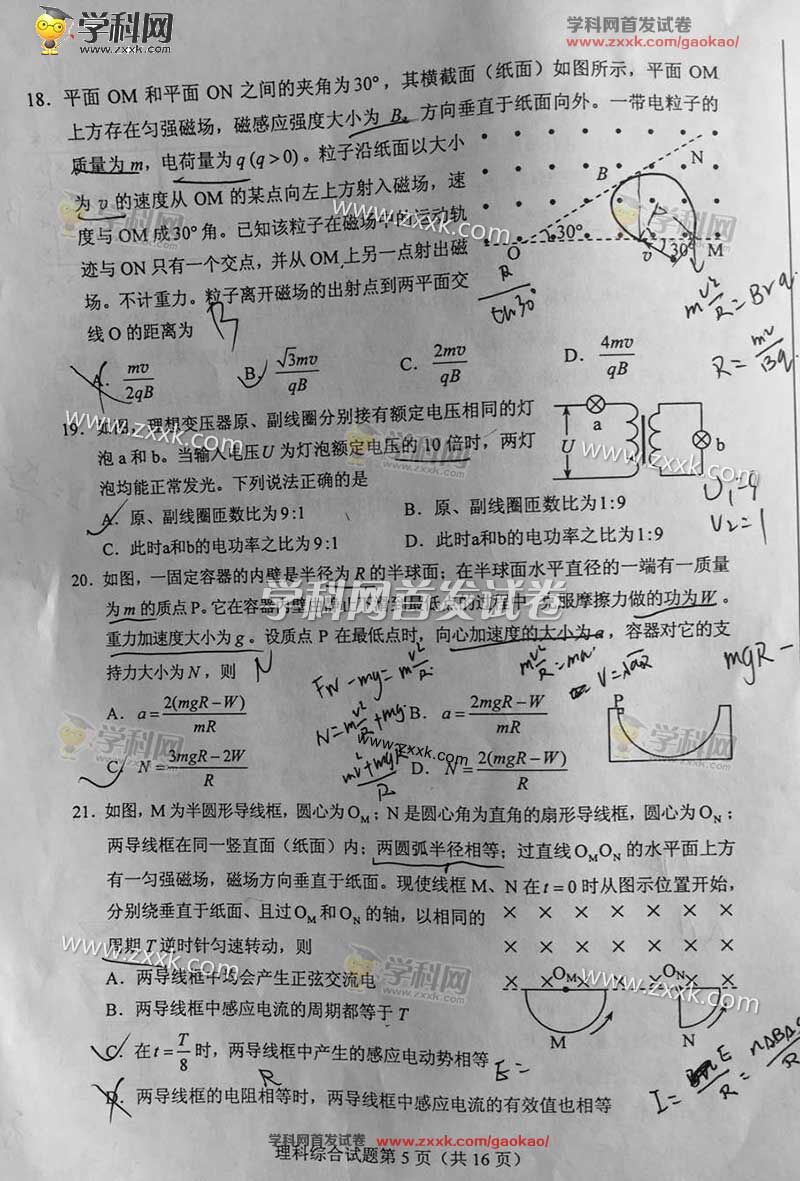 学科网
www.zxxk.com
学科网首发试卷
www.zxxk.com/gaokao/
18. 平面 OM 和平面 ON 之间的夹角为30°,其横截面(纸面)如图所示,平面 OM
上方存在匀强磁场,磁感应强度大小为 B。方向垂直于纸面向外。一带电粒子的
质量为 m,电荷量为 q (q>0)。粒子沿纸面以大小
为 v 的速度从 OM 的某点向左上方射入磁场,速
度与 OM 成30°角。已知该粒子在磁场中的运动轨
迹与 ON 只有一个交点,并从 OM 上另一点射出磁
场。不计重力。粒子离开磁场的出射点到两平面交
线 O 的距离为
B
N
B
O
30°
v
30°
M
R/th30°
m v²/R = Bvq
R = mv/Bq
A. mv/2qB
B. √3mv/qB
C. 2mv/qB
D. 4mv/qB
19. 如图,理想变压器原、副线圈分别接有额定电压相同的灯
泡 a 和 b。当输入电压 U 为灯泡额定电压的 10 倍时,两灯
泡均能正常发光。下列说法正确的是
A. 原、副线圈匝数比为9:1
B. 原、副线圈匝数比为1:9
C. 此时a和b的电功率之比为9:1
D. 此时a和b的电功率之比为1:9
a
U
b
U₁=9
V₂=1
www.zxxk.com
www.zxxk.com
学科网首发试卷
20. 如图,一固定容器的内壁是半径为 R 的半球面;在半球面水平直径的一端有一质量
为 m 的质点 P。它在容器内壁由静止下滑到最低点的过程中,克服摩擦力做的功为 W。
重力加速度大小为 g。设质点 P 在最低点时,向心加速度的大小为 a,容器对它的支
持力大小为 N,则
N
FN - mg = m v²/R
m v²/R = ma
V=√aR
mgR -
N = m v²/R + mg
A. a = 2(mgR-W)/mR
B. a = 2mgR-W/mR
C. N = 3mgR-2W/R
D. N = 2(mgR-W)/R
mv²+mgR/R
P
www.zxxk.com
学科网
学科网
21. 如图,M 为半圆形导线框,圆心为 O_M;N 是圆心角为直角的扇形导线框,圆心为 O_N;
两导线框在同一竖直面(纸面)内;两圆弧半径相等;过直线 O_M O_N 的水平面上方
有一匀强磁场,磁场方向垂直于纸面。现使线框 M、N 在 t = 0 时从图示位置开始,
分别绕垂直于纸面、且过 O_M 和 O_N 的轴,以相同的
周期 T 逆时针匀速转动,则
A. 两导线框中均会产生正弦交流电
B. 两导线框中感应电流的周期都等于 T
C. 在 t = T/8 时,两导线框中产生的感应电动势相等
D. 两导线框的电阻相等时,两导线框中感应电流的有效值也相等
O_M
O_N
M
N
R
E=
www.zxxk.com
www.zxxk.com
www.zxxk.com
学科网
学科网首发试卷
www.zxxk.com/gaokao/
理科综合试题第 5 页(共 16 页)